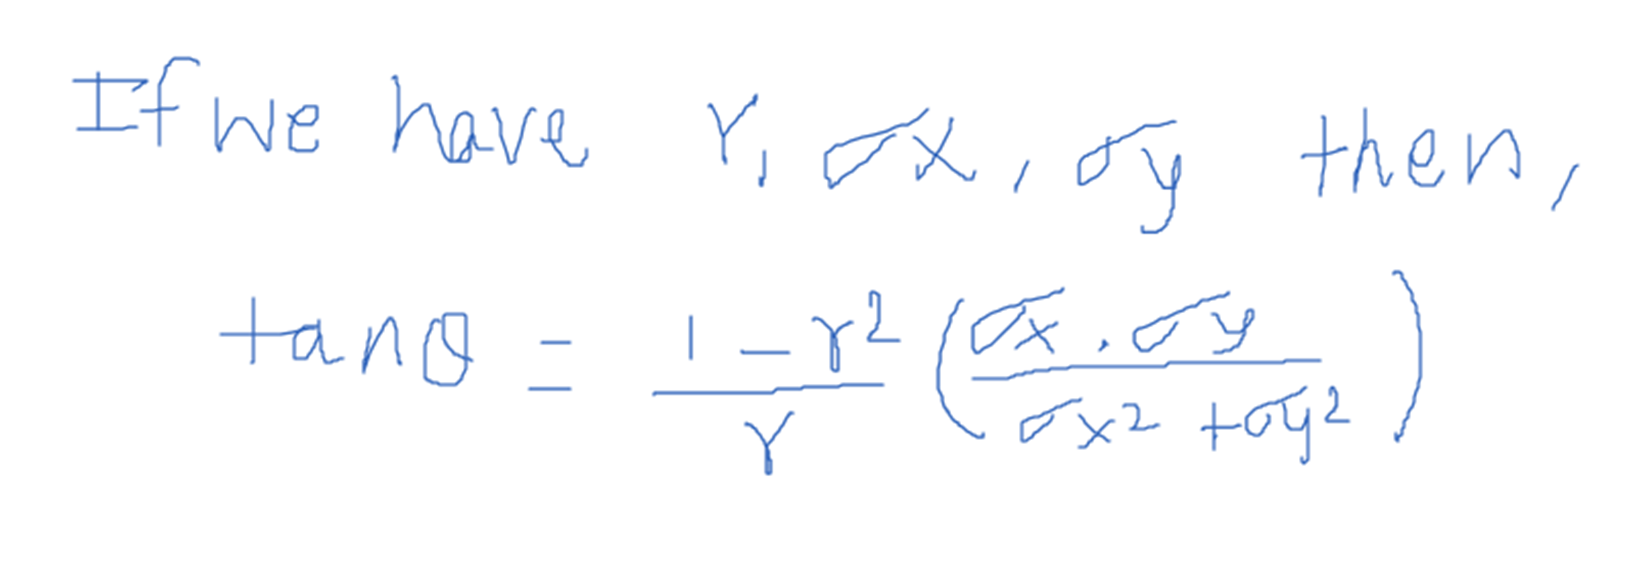 If we have r, σx, σy then,
tanθ = 1 - r² / r (σx . σy / σx² + σy²)